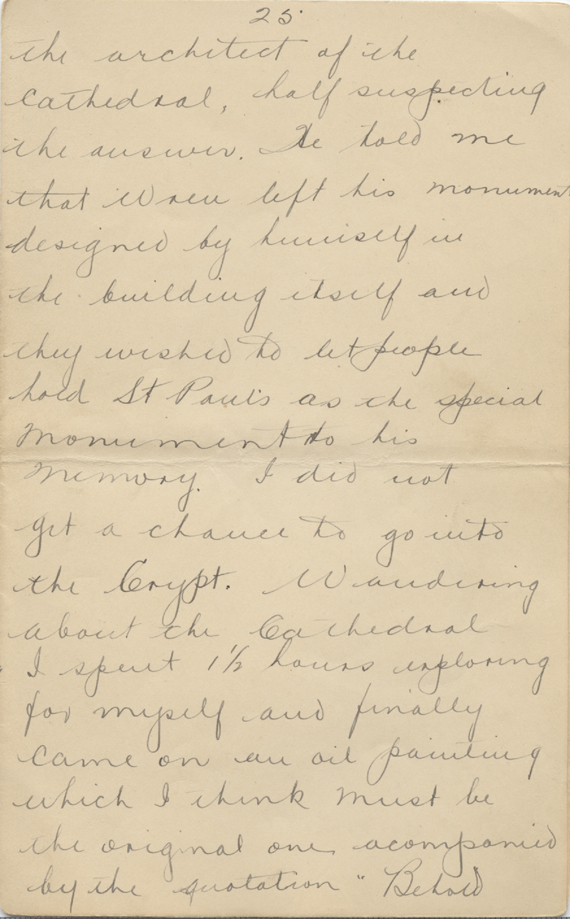 25
the architect of the
Cathedral, half suspecting
the answer. He told me
that Wren left his monument
designed by himself in
the building itself and
they wished to let people
hold St Paul's as the special
monument to his
memory. I did not
get a chance to go into
the Crypt. Wandering
about the Cathedral
I spent 1½ hours exploring
for myself and finally
came on an oil painting
which I think must be
the original one acompanied
by the quotation "Behold